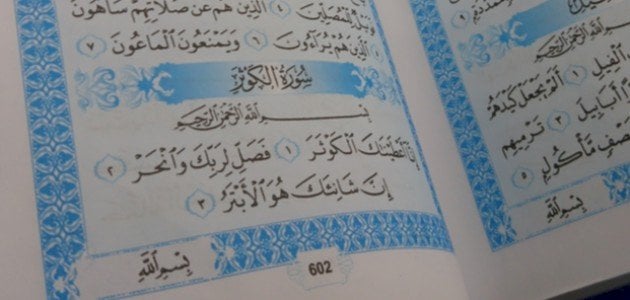 فَوَيْلٌ لِّلْمُصَلِّينَ ٤ الَّذِينَ هُمْ عَن صَلَاتِهِمْ سَاهُونَ
٥ الَّذِينَ هُمْ يُرَاءُونَ ٦ وَيَمْنَعُونَ الْمَاعُونَ ٧
سُورَةُ الْكَوْثَرِ
بِسْمِ اللَّهِ الرَّحْمَٰنِ الرَّحِيمِ
إِنَّا أَعْطَيْنَاكَ الْكَوْثَرَ ١ فَصَلِّ لِرَبِّكَ وَانْحَرْ ٢
إِنَّ شَانِئَكَ هُوَ الْأَبْتَرُ ٣
بِسْمِ اللَّهِ
602
بِسْمِ اللَّهِ الرَّحْمَٰنِ الرَّحِيمِ
الْفِيلِ ١ أَلَمْ يَجْعَلْ كَيْدَهُمْ
أَبَابِيلَ ٣ تَرْمِيهِم
مَّأْكُولٍ ٥
بِسْمِ اللَّهِ